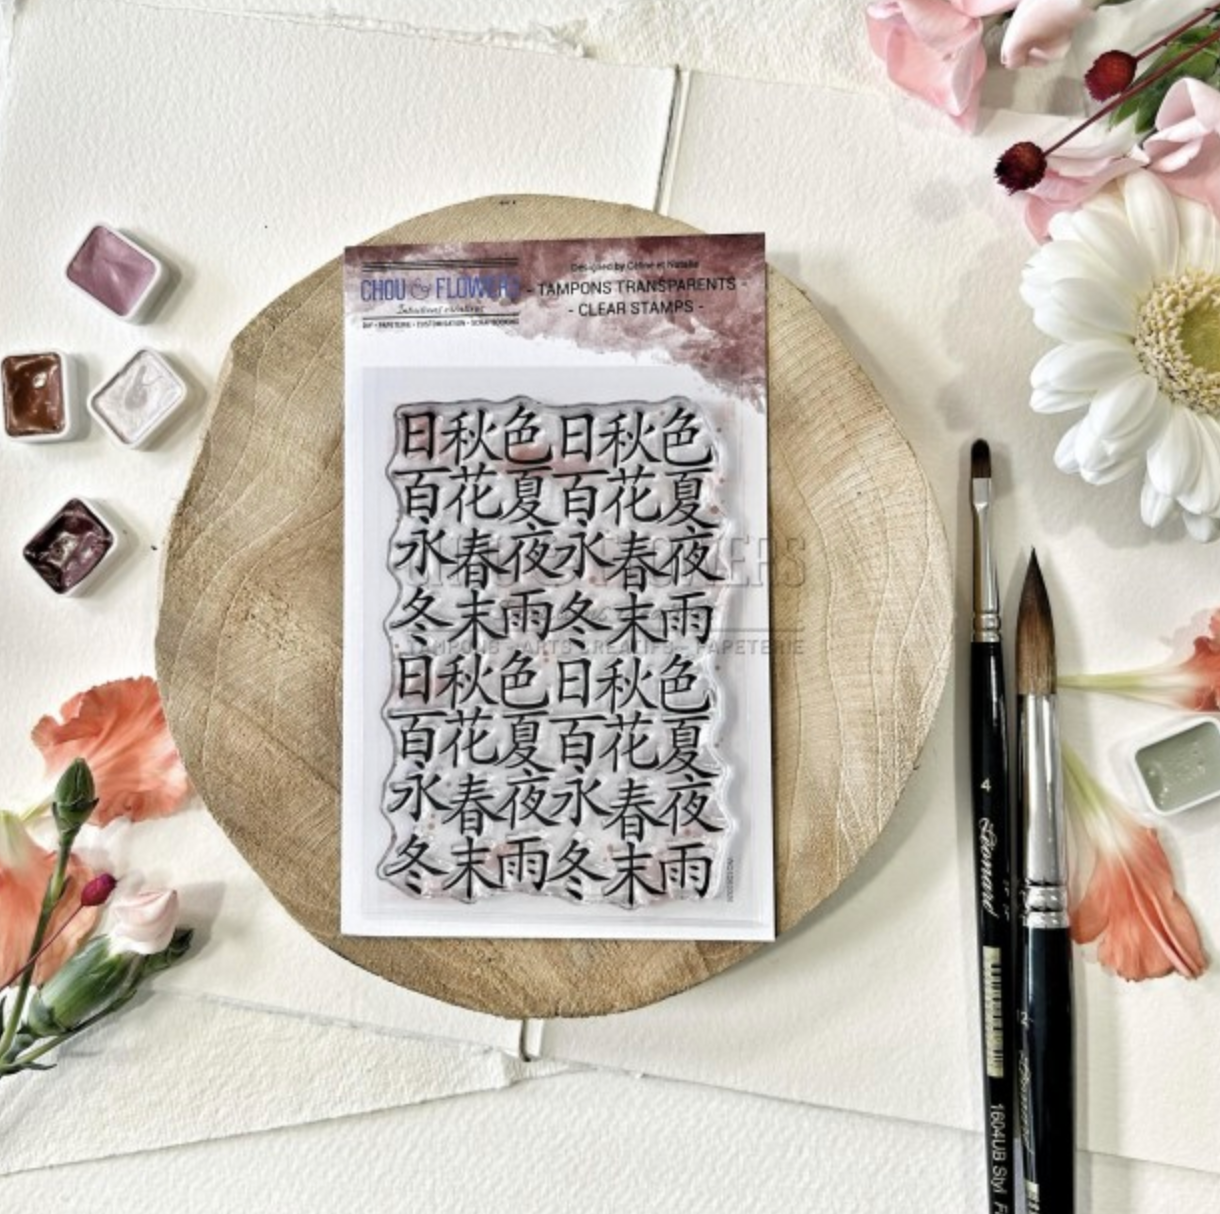 CHOU & FLOWERS
DIY • PAPETERIE • CUSTOMISATION • SCRAPBOOKING
Designed by Céline et Natalie
- TAMPONS TRANSPARENTS -
- CLEAR STAMPS -
日秋色日秋色
百花夏百花夏
永春夜永春夜
冬末雨冬末雨
日秋色日秋色
百花夏百花夏
永春夜永春夜
冬末雨冬末雨
CHOU & FLOWERS
TAMPONS - ARTS CRÉATIFS - PAPETERIE
4
1604UB Styl